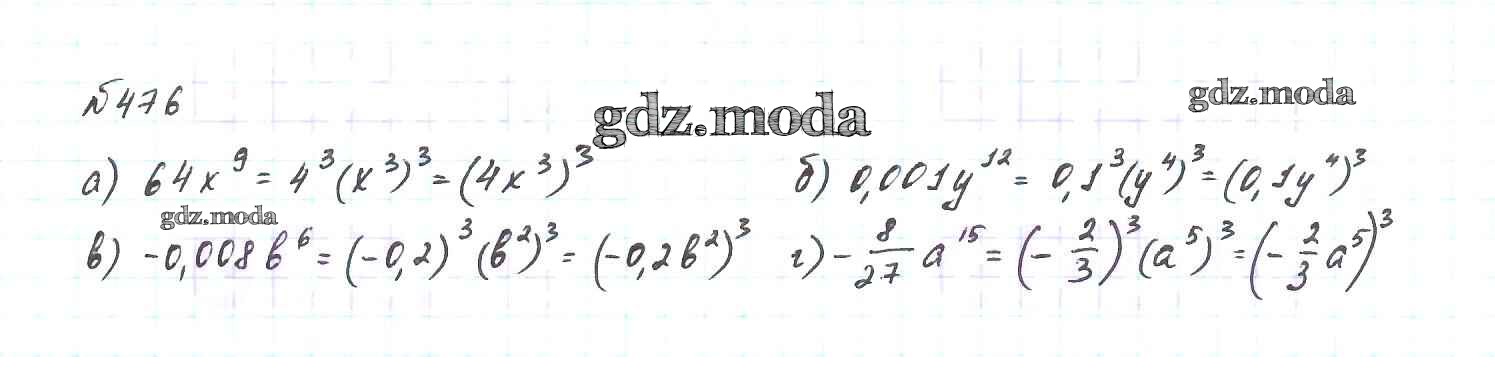 №476
gdz.moda
gdz.moda
а) 64x⁹ = 4³(x³)³ = (4x³)³ б) 0,001y¹² = 0,1³(y⁴)³ = (0,1y⁴)³
gdz.moda
в) -0,008b⁶ = (-0,2)³(b²)³ = (-0,2b²)³ г) -8/27 a¹⁵ = (-2/3)³(a⁵)³ = (-2/3 a⁵)³